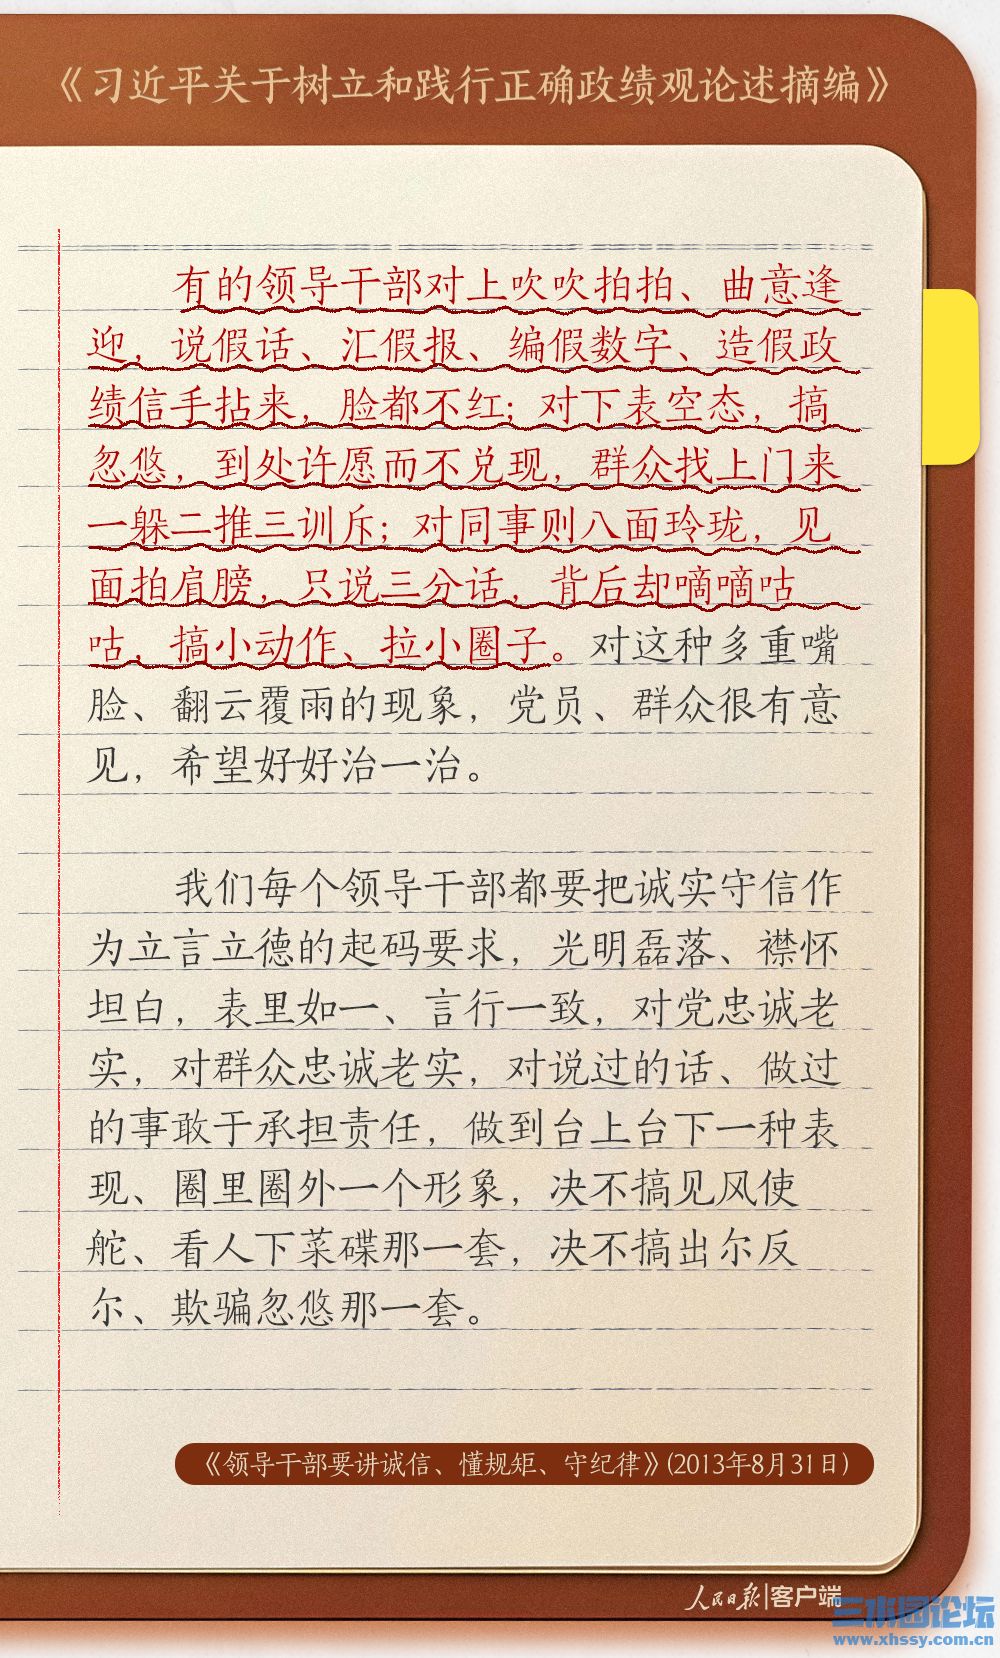 《习近平关于树立和践行正确政绩观论述摘编》
有的领导干部对上吹吹拍拍、曲意逢
迎，说假话、汇假报、编假数字、造假政
绩信手拈来，脸都不红；对下表空态，搞
忽悠，到处许愿而不兑现，群众找上门来
一躲二推三训斥；对同事则八面玲珑，见
面拍肩膀，只说三分话，背后却嘀嘀咕
咕，搞小动作、拉小圈子。对这种多重嘴
脸、翻云覆雨的现象，党员、群众很有意
见，希望好好治一治。
我们每个领导干部都要把诚实守信作
为立言立德的起码要求，光明磊落、襟怀
坦白，表里如一、言行一致，对党忠诚老
实，对群众忠诚老实，对说过的话、做过
的事敢于承担责任，做到台上台下一种表
现、圈里圈外一个形象，决不搞见风使
舵、看人下菜碟那一套，决不搞出尔反
尔、欺骗忽悠那一套。
《领导干部要讲诚信、懂规矩、守纪律》(2013年8月31日)
人民日报|客户端
三水园论坛
www.xhssy.com.cn